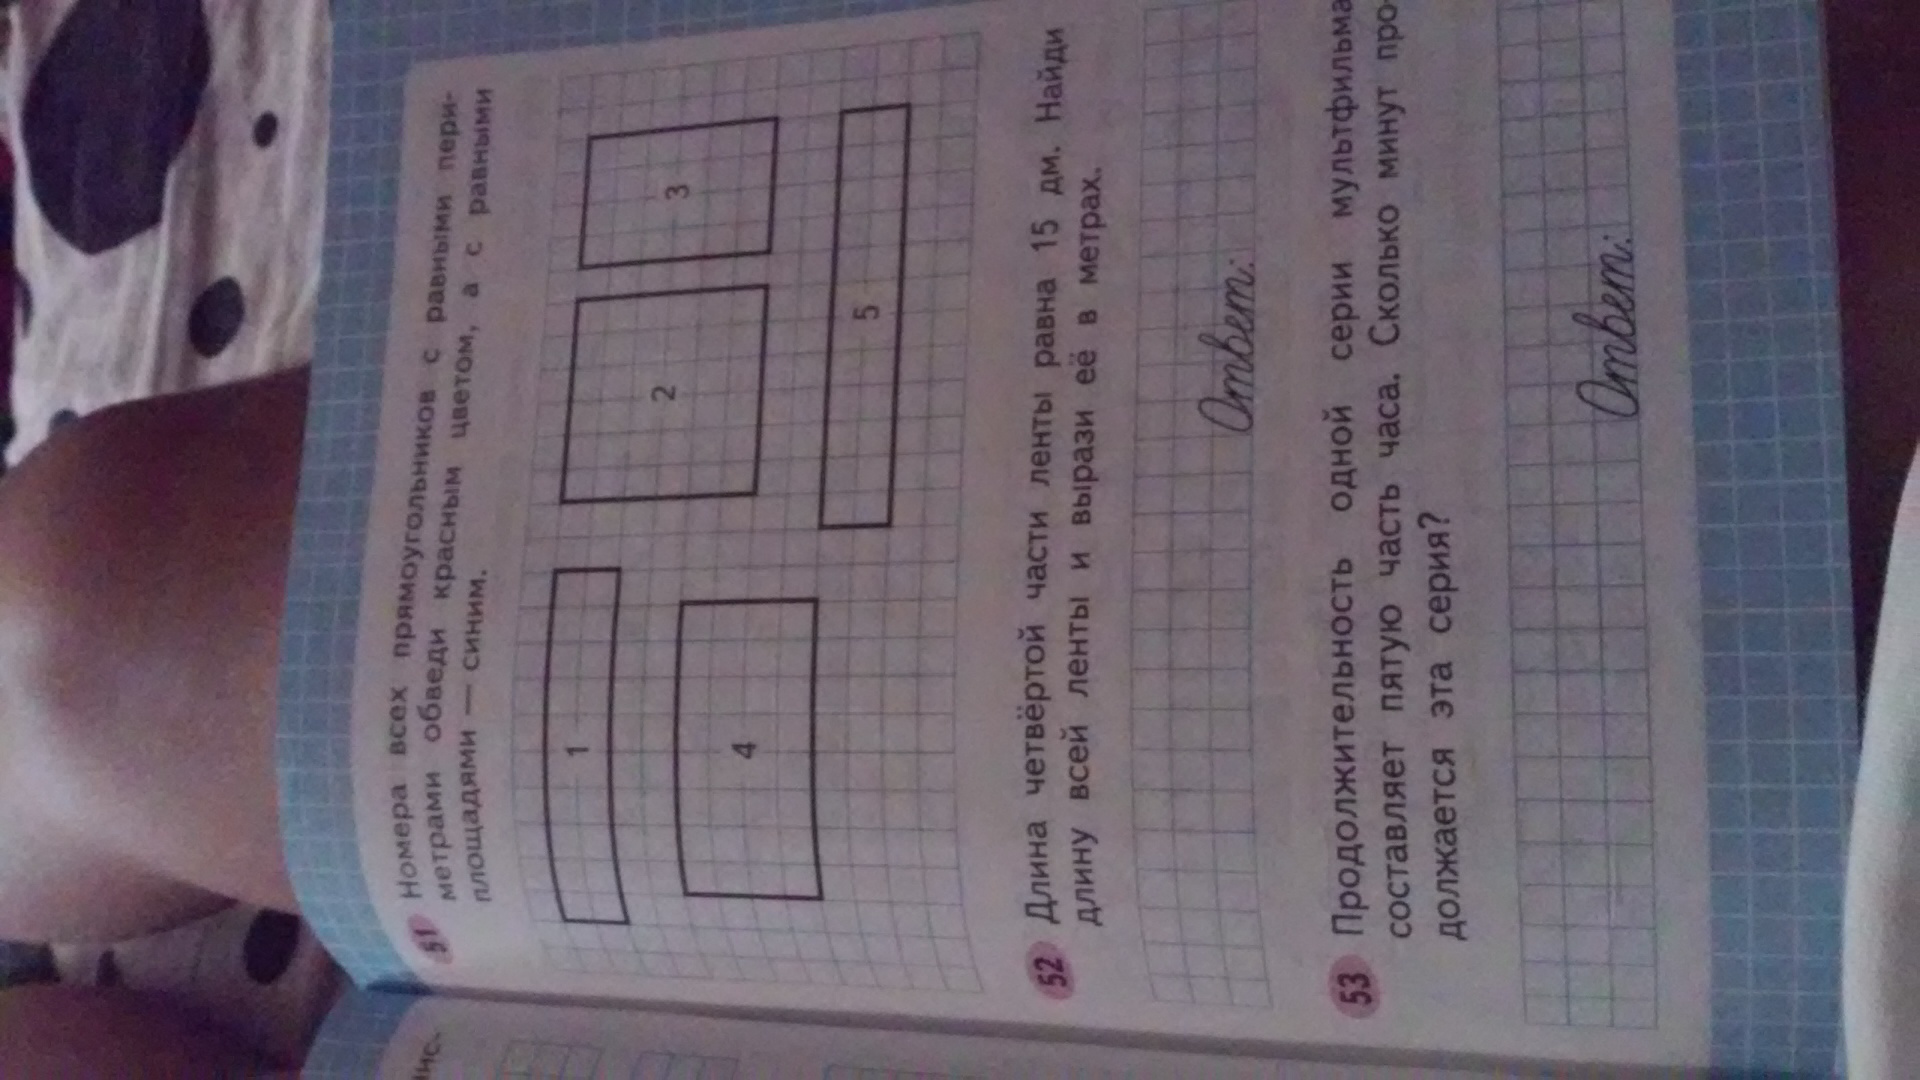 нис.
51 Номера всех прямоугольников с равными пери-
метрами обведи красным цветом, а с равными
площадями — синим.
1
2
3
4
5
52 Длина четвёртой части ленты равна 15 дм. Найди
длину всей ленты и вырази её в метрах.
Ответ:
53 Продолжительность одной серии мультфильма
составляет пятую часть часа. Сколько минут про-
должается эта серия?
Ответ: